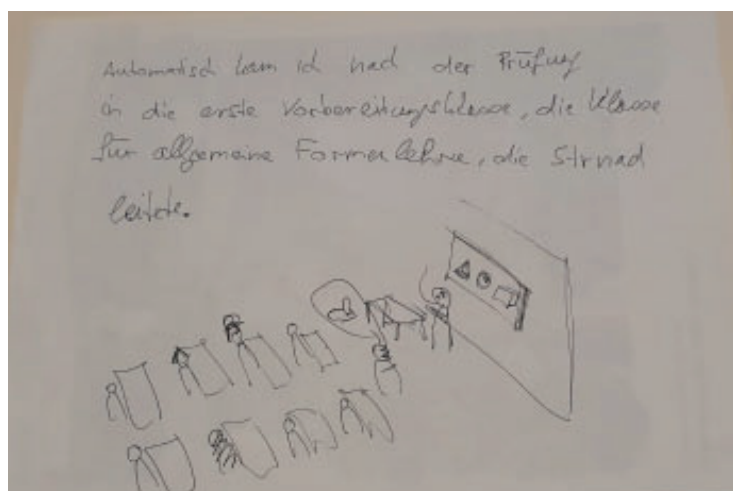 Automatisch kam ich nach der Prüfung
in die erste Vorbereitungsklasse, die Klasse
für allgemeine Formenlehre, die Strnad
leitete.